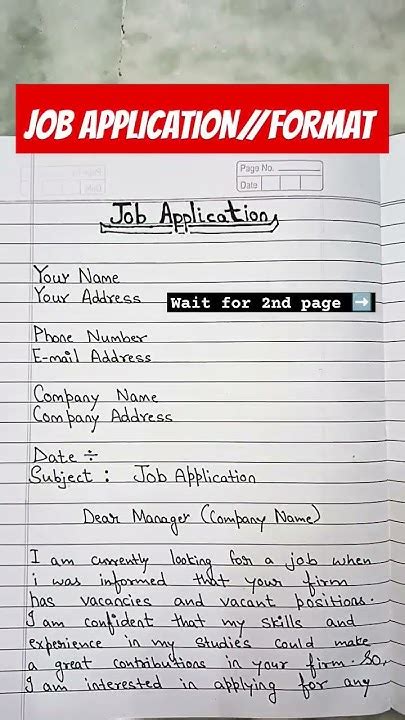 JOB APPLICATION//FORMAT
Page No.
Date
Job Application
Your Name
Your Address
Wait for 2nd page ➡️
Phone Number
E-mail Address
Company Name
Company Address
Date ÷
Subject : Job Application
Dear Manager (Company Name)
I am currently looking for a job when
i was informed that your firm
has vacancies and vacant positions.
I am confident that my skills and
experience in my studies could make
a great contributions in your firm. So,
I am interested in applying for any